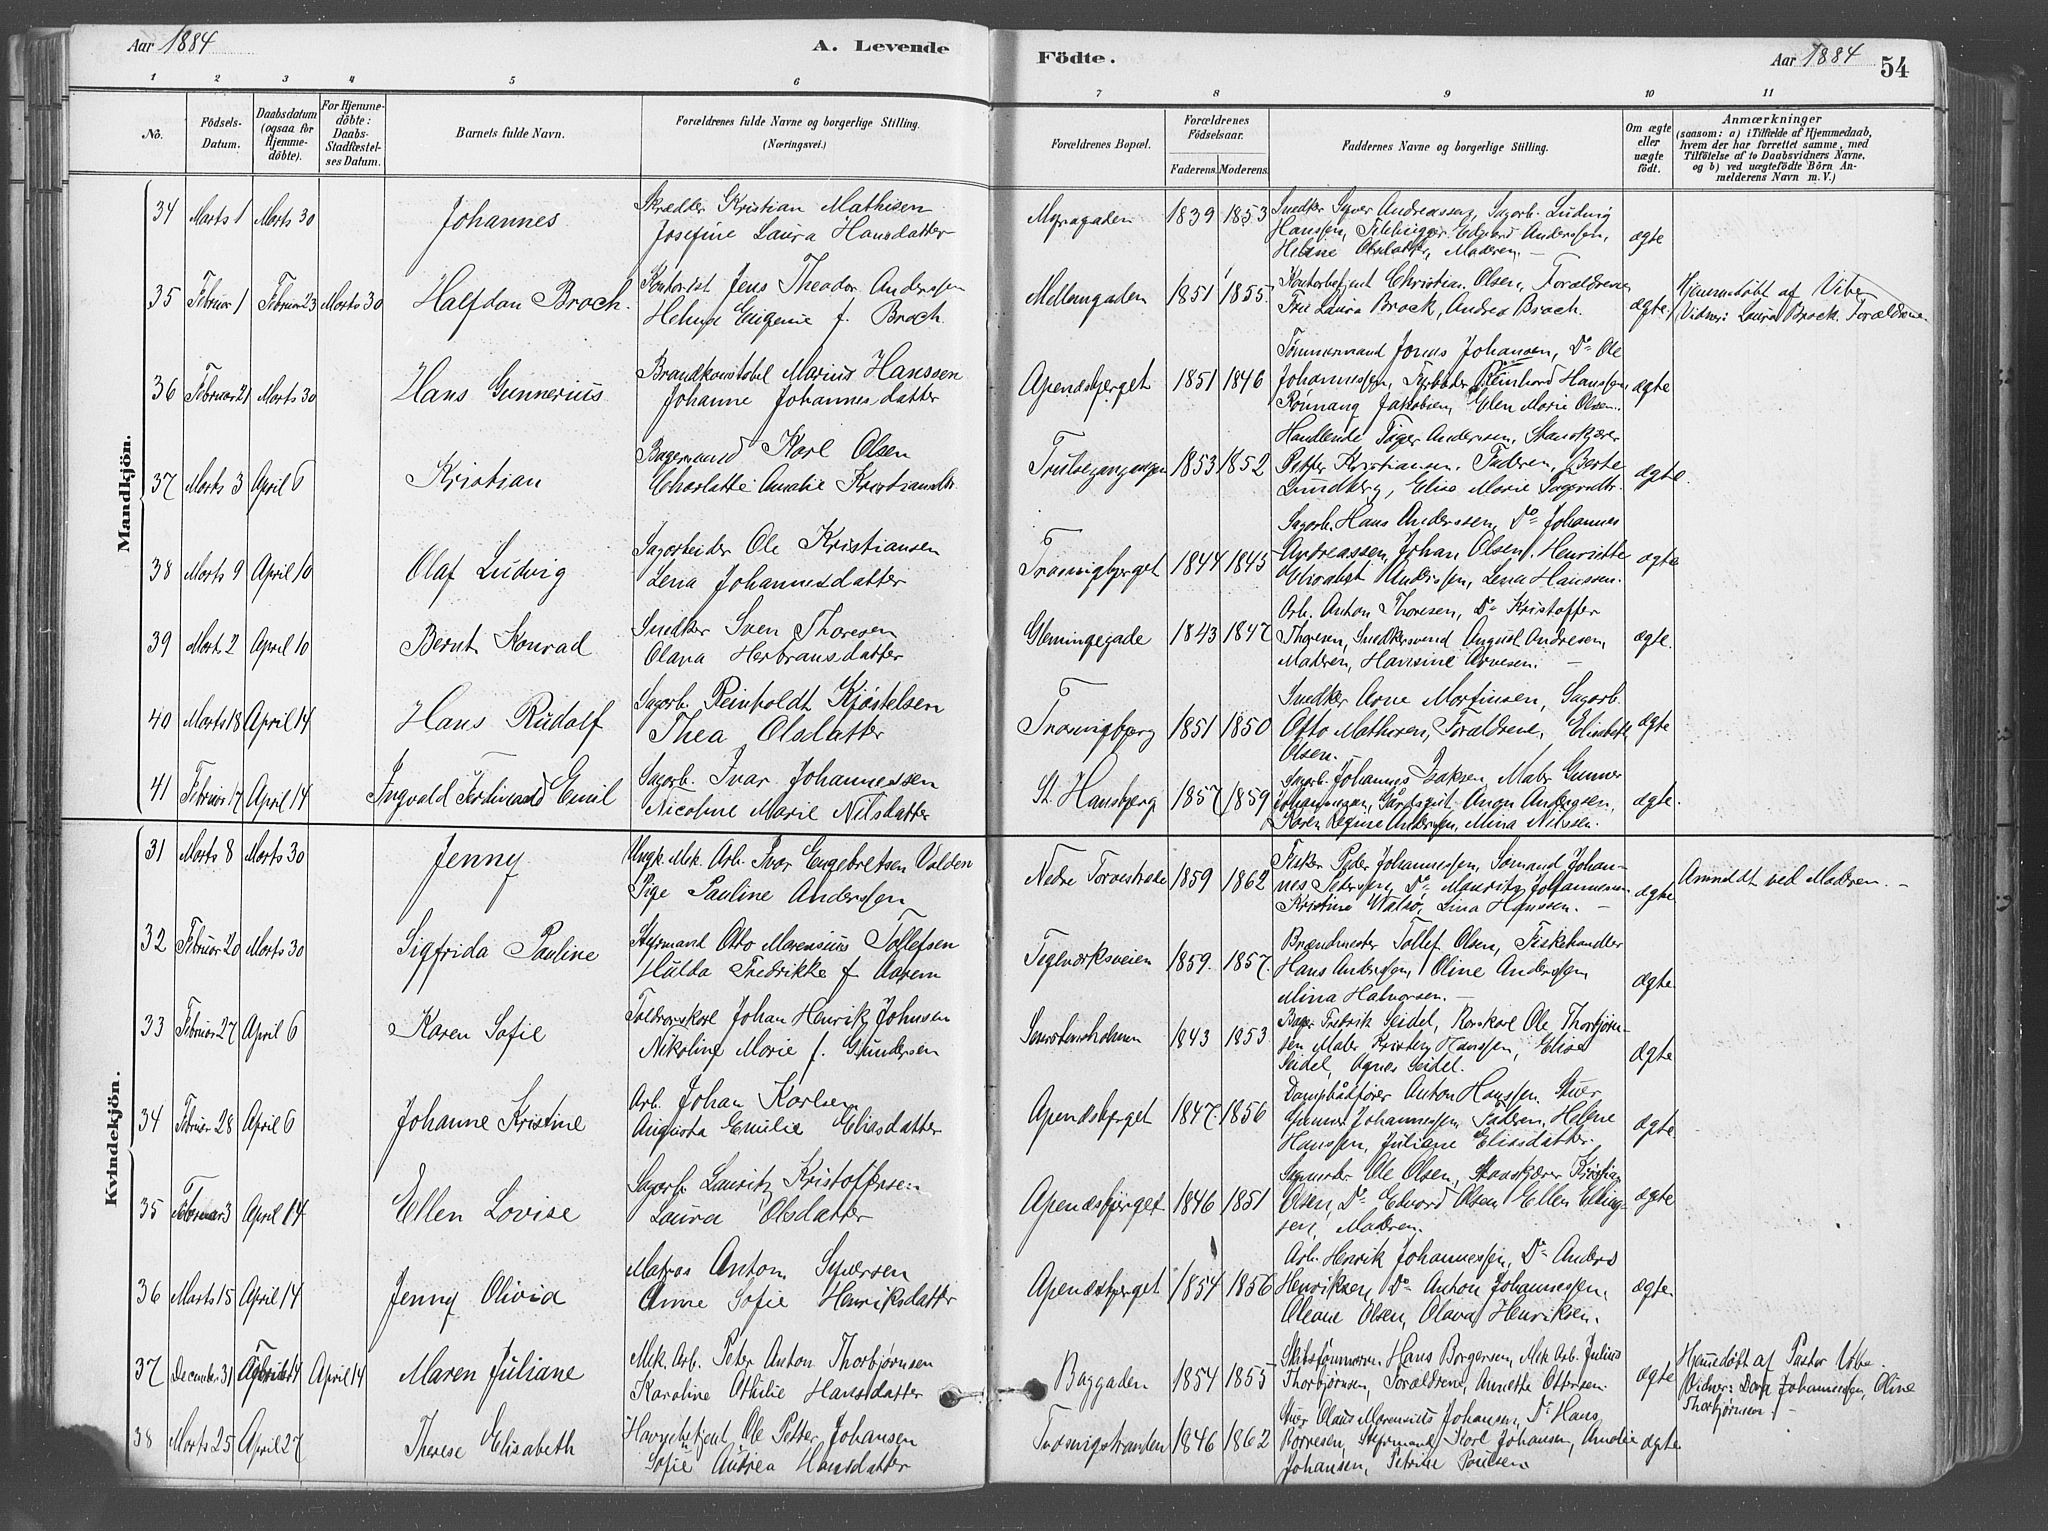 Aar 1884
A. Levende
Födte.
Aar 1884
54
1 2 3 4 5 6 7 8 9 10 11
No.
Födsels-Datum.
Daabsdatum (ogsaa for Hjemme-döbte).
For Hjemme-döbte: Daabs-Stadfæstel-ses Datum.
Barnets fulde Navn.
Forældrenes fulde Navne og borgerlige Stilling.
(Næringsvei.)
Forældrenes Bopæl.
Forældrenes Födselsaar.
Faderens. Moderens.
Faddernes Navne og borgerlige Stilling.
Om ægte eller uægte födt.
Anmærkninger
(saasom: a) i Tilfælde af Hjemmedaab,
hvem der har forrettet samme, med
Tilföielse af to Daabsvidners Navne,
og b) ved uægtefödte Börn An-
melderens Navn m. V.)
Mandkjön.
34 Marts 1 Marts 30 Johannes
Skrædder Kristian Mathisen
Josefine Laura Hansdatter
1839 1853
Snedker Syver Andreassen, Sagarb. Ludvig
Hanssen, Edvard Anderssen,
Helene Olsdatter, Moderen.
ægte
35 Februar 1 Februar 23 Marts 30 Halfdan Broch.
Kontorist Jens Theodor Anderssen
Eugenie f. Broch.
Mellemgaden 1851 1855
Kontorbetjent Christian Olsen, Forældrene
Fru Laura Brock, Andrea Broch.
ægte.
Hjemmedøbt af Vibe
Vidner: Laura Brock. Forældrene
36 Februar 21 Marts 30 Hans Gunnerius
Brandkonstabel Marius Hanssen
Johanne Johannesdatter
Apenæsbjerget 1851 1846
Tømmermand Jonas Johansen, Do Ole
Johannessen, Fyrbøder Reinhard Hanssen
Rønnaug Jakobsen, Elen Marie Olsen.
ægte
37 Marts 3 April 6 Kristian
Bagersvend Karl Olsen
Charlotte Amalie Kristiansdtr.
1853 1852
Handlende Tøger Andersen, Stenskjærer
Petter Kristiansen, Faderen, Berte
Lundberg, Elise Marie
ægte.
38 Marts 9 April 10 Olaf Ludvig
Sagarbeider Ole Kristiansen
Lena Johannesdatter
Trosvigbjerget 1844 1845
Sagarb. Hans Anderssen, Do Johannes
Andreassen, Johan Olsen, Henriette
Elisabet Anderssen, Lena Hanssen.
ægte
39 Marts 2 April 10 Bernt Konrad
Snedker Sven Thoresen
Olava Herbransdatter
Glemmingegade 1843 1847
Arb. Anton Thoresen, Do Kristoffer
Thoresen, Snedkersvend August Andresen,
Moderen, Hansine Arnesen.
ægte.
40 Marts 18 April 14 Hans Rudolf
Sagarb. Reinholdt Kjøstelsen
Thea Olsdatter
Trosvigbjerg 1851 1850
Snedker Arne Martinsen, Sagarb.
Otto Mathisen, Forældrene, Elisabeth
Olsen.
ægte
41 Februar 17 April 14 Ingvald Ferdinand Emil
Sagarb. Ivar Johannessen
Nicoline Marie Nilsdatter
St. Hansbjerg 1857 1859
Sagarb. Johannes Isaksen, Maler Gunner
Johannessen, Anon Anderssen,
Karen Regine Anderssen, Mina Nilssen.
ægte.
Kvindekjön.
31 Marts 8 Marts 30 Jenny
Ungk. Mek. Arb. Ivar Engebretsen Volden
Pige Pauline Anderssen
Nedre Torvestræde 1859 1862
Fisker Peder Johannessen, Sømand Johan-
nes Pederssen, Do Mauritz Johannessen
Kristine Walsø, Lina Hanssen.
ægte
Anmeldt ved Moderen.
32 Februar 20 Marts 30 Sigfrida Pauline
Styrmand Otto Marensius Tollefsen
Hulda Fredrikke f. Aarem
Teglværksveien 1859. 1857.
Brandmester Tollef Olsen, Fiskehandler
Hans Anderssen, Oline Anderssen,
Mina Halvorsen.
ægte
33 Februar 27 April 6 Karen Sofie
Toldrorskarl Johan Henrik Johnsen
Nikoline Marie f. Gundersen
1843 1853
Bager Fredrik Seidel, Rorskarl Ole Thorbjørn-
sen, Maler Kristen Hanssen, Elise
Seidel, Agnes Seidel.
ægte
34 Februar 28 April 6 Johanne Kristine
Arb. Johan Karlsen
Augusta Emilie Eliasdatter
Apenæsbjerget 1847 1856
Dampbådfører Anton Hanssen, Stuer
Gunner Johannessen, Faderen, Helene
Hanssen, Juliane Eliasdatter.
ægte
35 Februar 3 April 14 Ellen Lovise
Sagarb. Lauritz Kristoffersen
Laura Olsdatter
Apenæsbjerget 1846 1851
Ole Olsen, Stenskjærer Kristian
Olsen, Do Edvard Olsen, Ellen Elling-
sen, Moderen.
ægte
36 Marts 15 April 14 Jenny Olivia
Matros Anton Syversen
Anne Sofie Henriksdatter
Apenæsbjerget 1854 1856
Arb. Henrik Johannessen, Do Anders
Henriksen, Do Anton Johannessen,
Oleane Olsen, Olava Henriksen.
ægte
37 December 31 April 14 Maren Juliane
Mek. Arb. Peter Anton Thorbjørnsen
Karoline Othilie Hansdatter
Baggaden 1854 1855
Skibstømmerm. Hans Borgersen, Mek. Arb. Julius
Thorbjørnsen, Forældrene, Annette Ottersen.
ægte
Hjemmedøbt af Pastor Vibe.
Vidner: Johannessen, Oline
Thorbjørnsen
38 Marts 25 April 27 Therese Elisabeth
Havnebetjent Ole Petter Johansen
Sofie Andrea Hansdatter
Trosvigstranden 1846 1862
Stuer Olaus Marensius Johansen, Do Hans
Borresen, Styrmand Karl Johansen, Amalie
Johansen, Petrine Poulsen
ægte